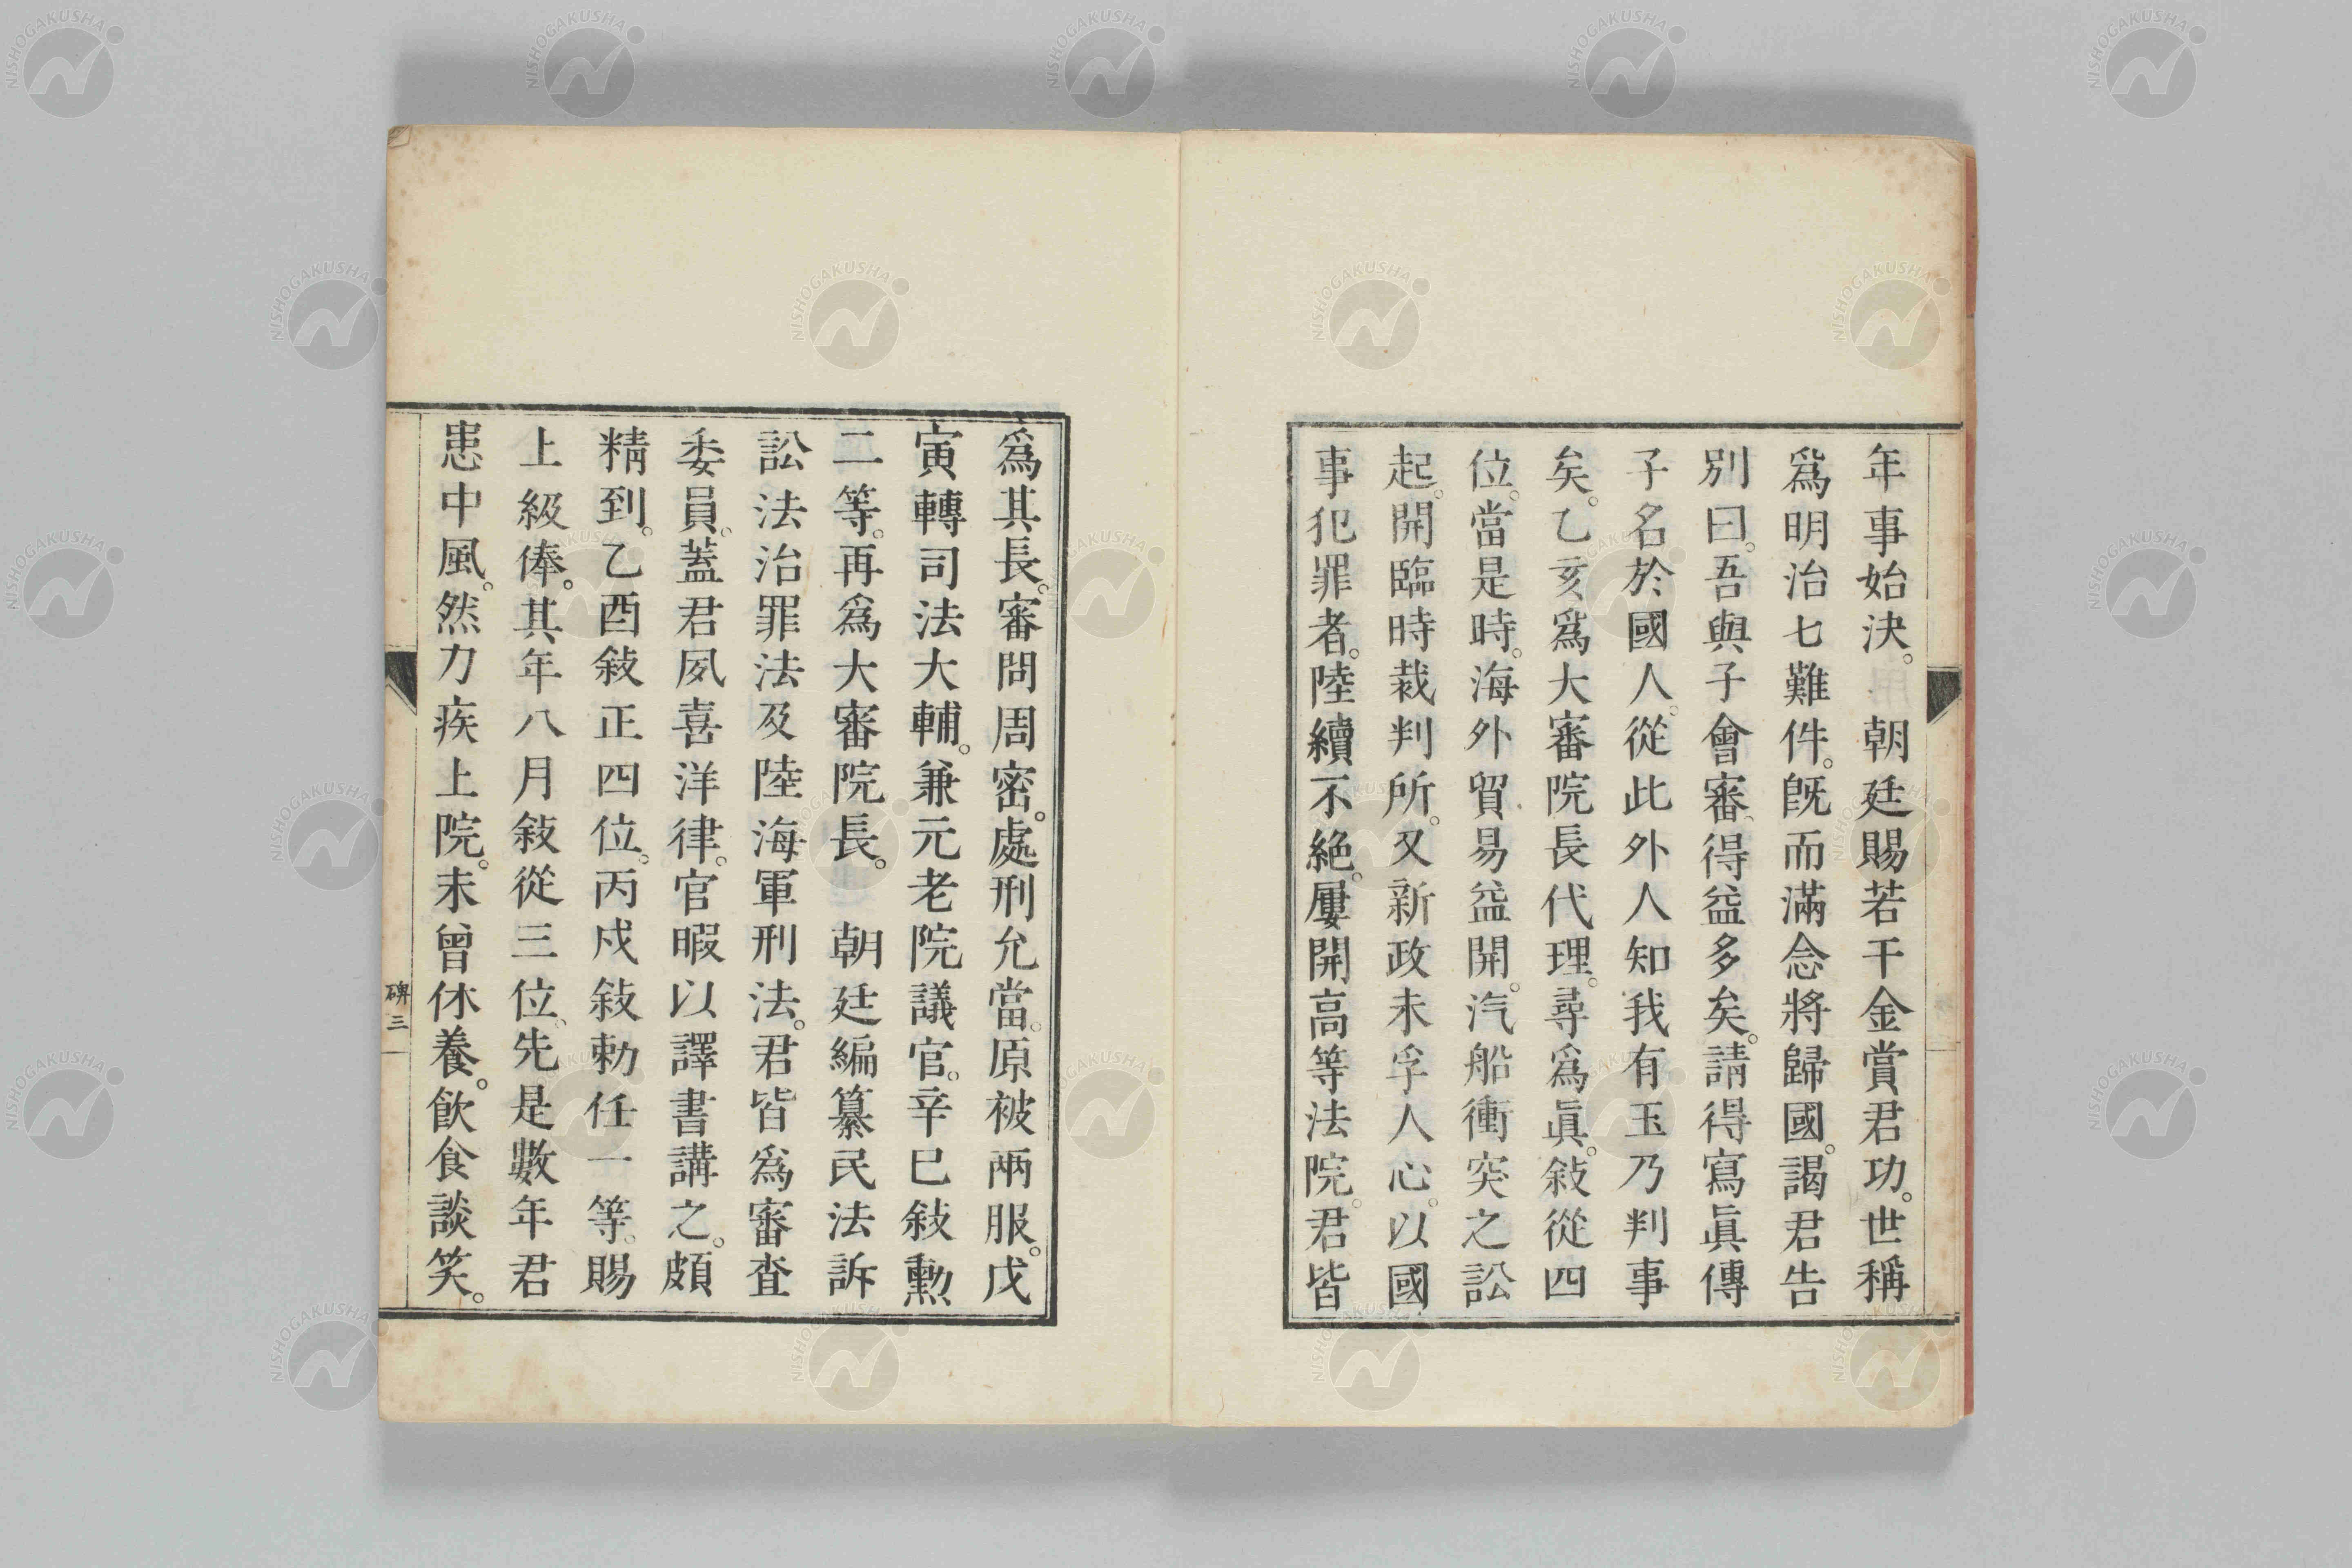 年事始決。　朝廷賜若干金賞君功。世稱
爲明治七難件。既而滿念將歸國。謁君告
別曰。吾與子會審、得益多矣。請得寫眞傳
子名於國人。從此外人知我有玉乃判事
矣。乙亥爲大審院長代理。尋爲眞。敍從四
位。當是時。海外貿易益開。汽船衝突之訟
起。開臨時裁判所。又新政未孚人心。以國
事犯罪者。陸續不絶。屢開高等法院。君皆
爲其長。審問周密。處刑允當。原被兩服。戊
寅轉司法大輔。兼元老院議官。辛巳敍勳
二等。再爲大審院長。　朝廷編纂民法訴
訟法治罪法及陸海軍刑法。君皆爲審査
委員。蓋君夙喜洋律。官暇以譯書講之。頗
精到。乙酉敍正四位。丙戌敍勅任一等。賜
上級俸。其年八月敍從三位。先是數年君
患中風。然力疾上院。未曾休養。飮食談笑。
碑三
NISHOGAKUSHA